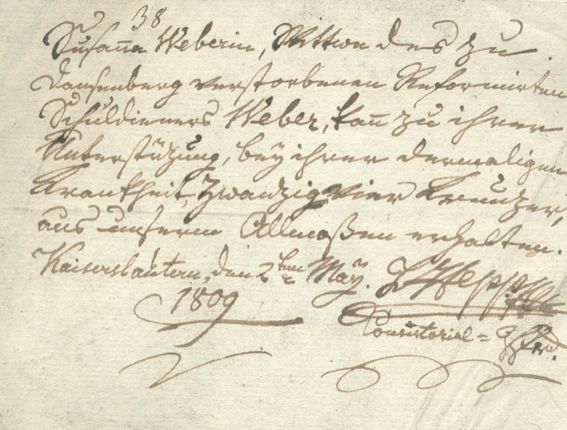 38
Susanna Weberin, Wittwe des zu
Dansenberg verstorbenen Reformirten
Schuldieners Weber, kann zu ihrer
Unterstüzung, bey ihrer dermaligen
Krankheit, zwanzig vier Kreuzer,
aus unserm Allmoßen erhalten.
Kaiserslautern, den 2ten May.
1809
Consistorial =